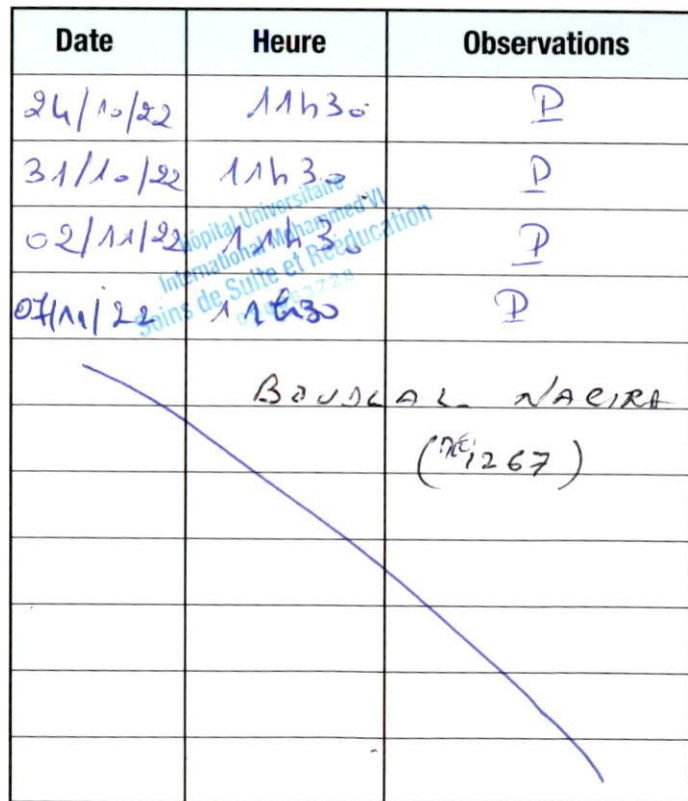 Date Heure Observations
24/10/22 11h30 P
31/10/22 11h30 P
02/11/22 11h30 P
07/11/22 11h30 P
Hôpital Universitaire
International Mohammed VI
Soins de Suite et Rééducation
NACIRA
1267)